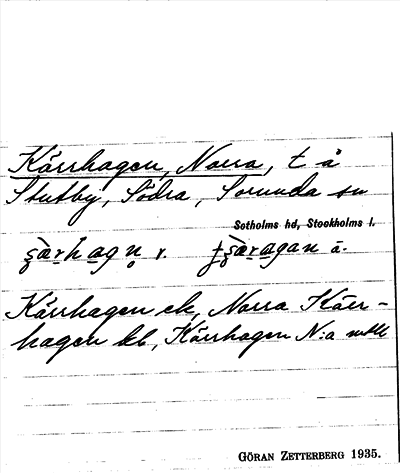 Kärrhagen, Norra, t å
Stutby, Södra, Sorunda sn
Sotholms hd, Stockholms l.
r. ä.
Kärrhagen ek, Norra Kärr-
hagen kb, Kärrhagen N:a
GÖRAN ZETTERBERG 1935.